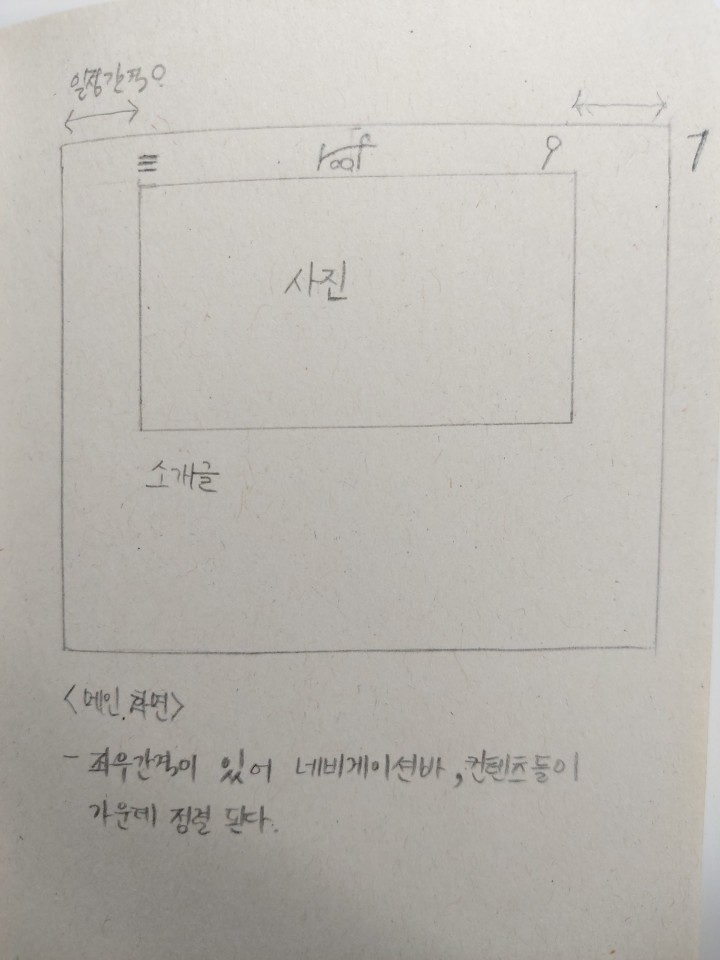 일정간격O
roof
사진
소개글
<메인 화면>
- 좌우간격이 있어 네비게이션바, 컨텐츠들이
가운데 정렬 된다.